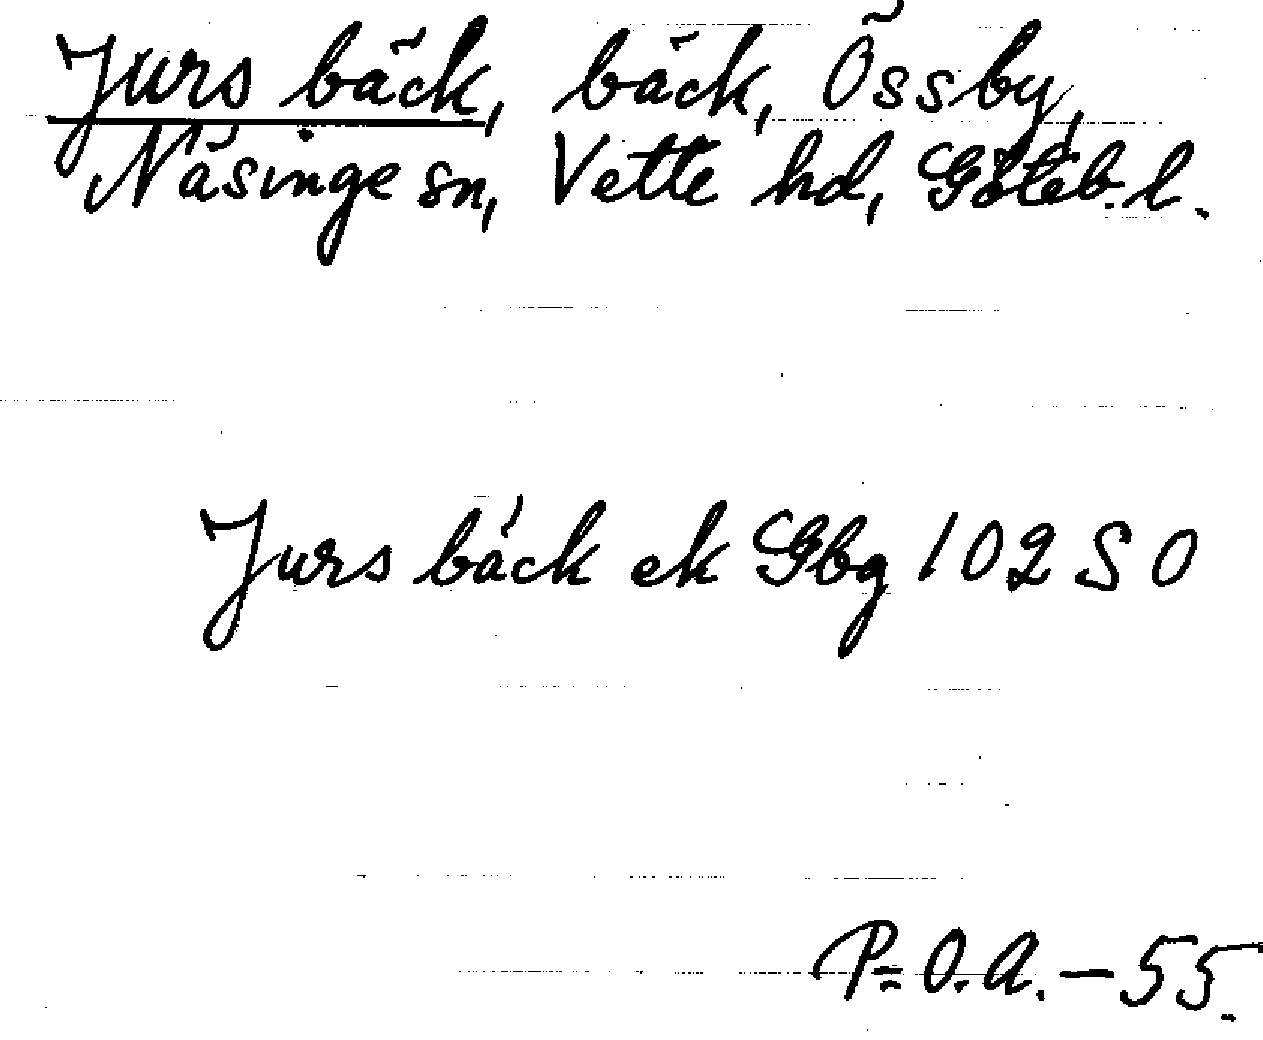 Jurs bäck, bäck, Össby,
Näsinge sn, Vette hd, Göteb. l.
Jurs bäck ek Gbg 102 S O
P-O.A. - 55.